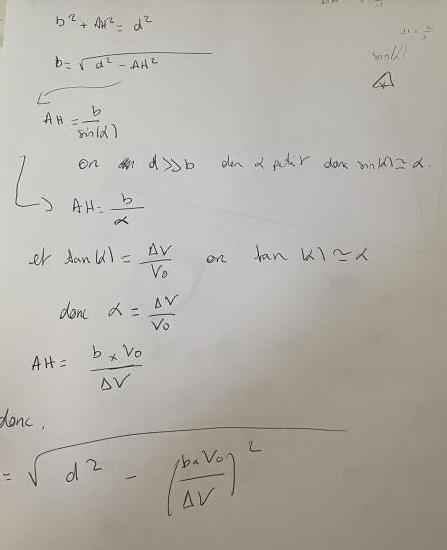 b² + AH² = d²
b = √(d² - AH²)
sin(α)
AH = b / sin(α)
or d >> b donc α petit donc sin(α) ≃ α.
AH = b / α
et tan(α) = ΔV / V₀ or tan(α) ≃ α
donc α = ΔV / V₀
AH = b × V₀ / ΔV
donc,
= √(d² - (b × V₀ / ΔV)²)